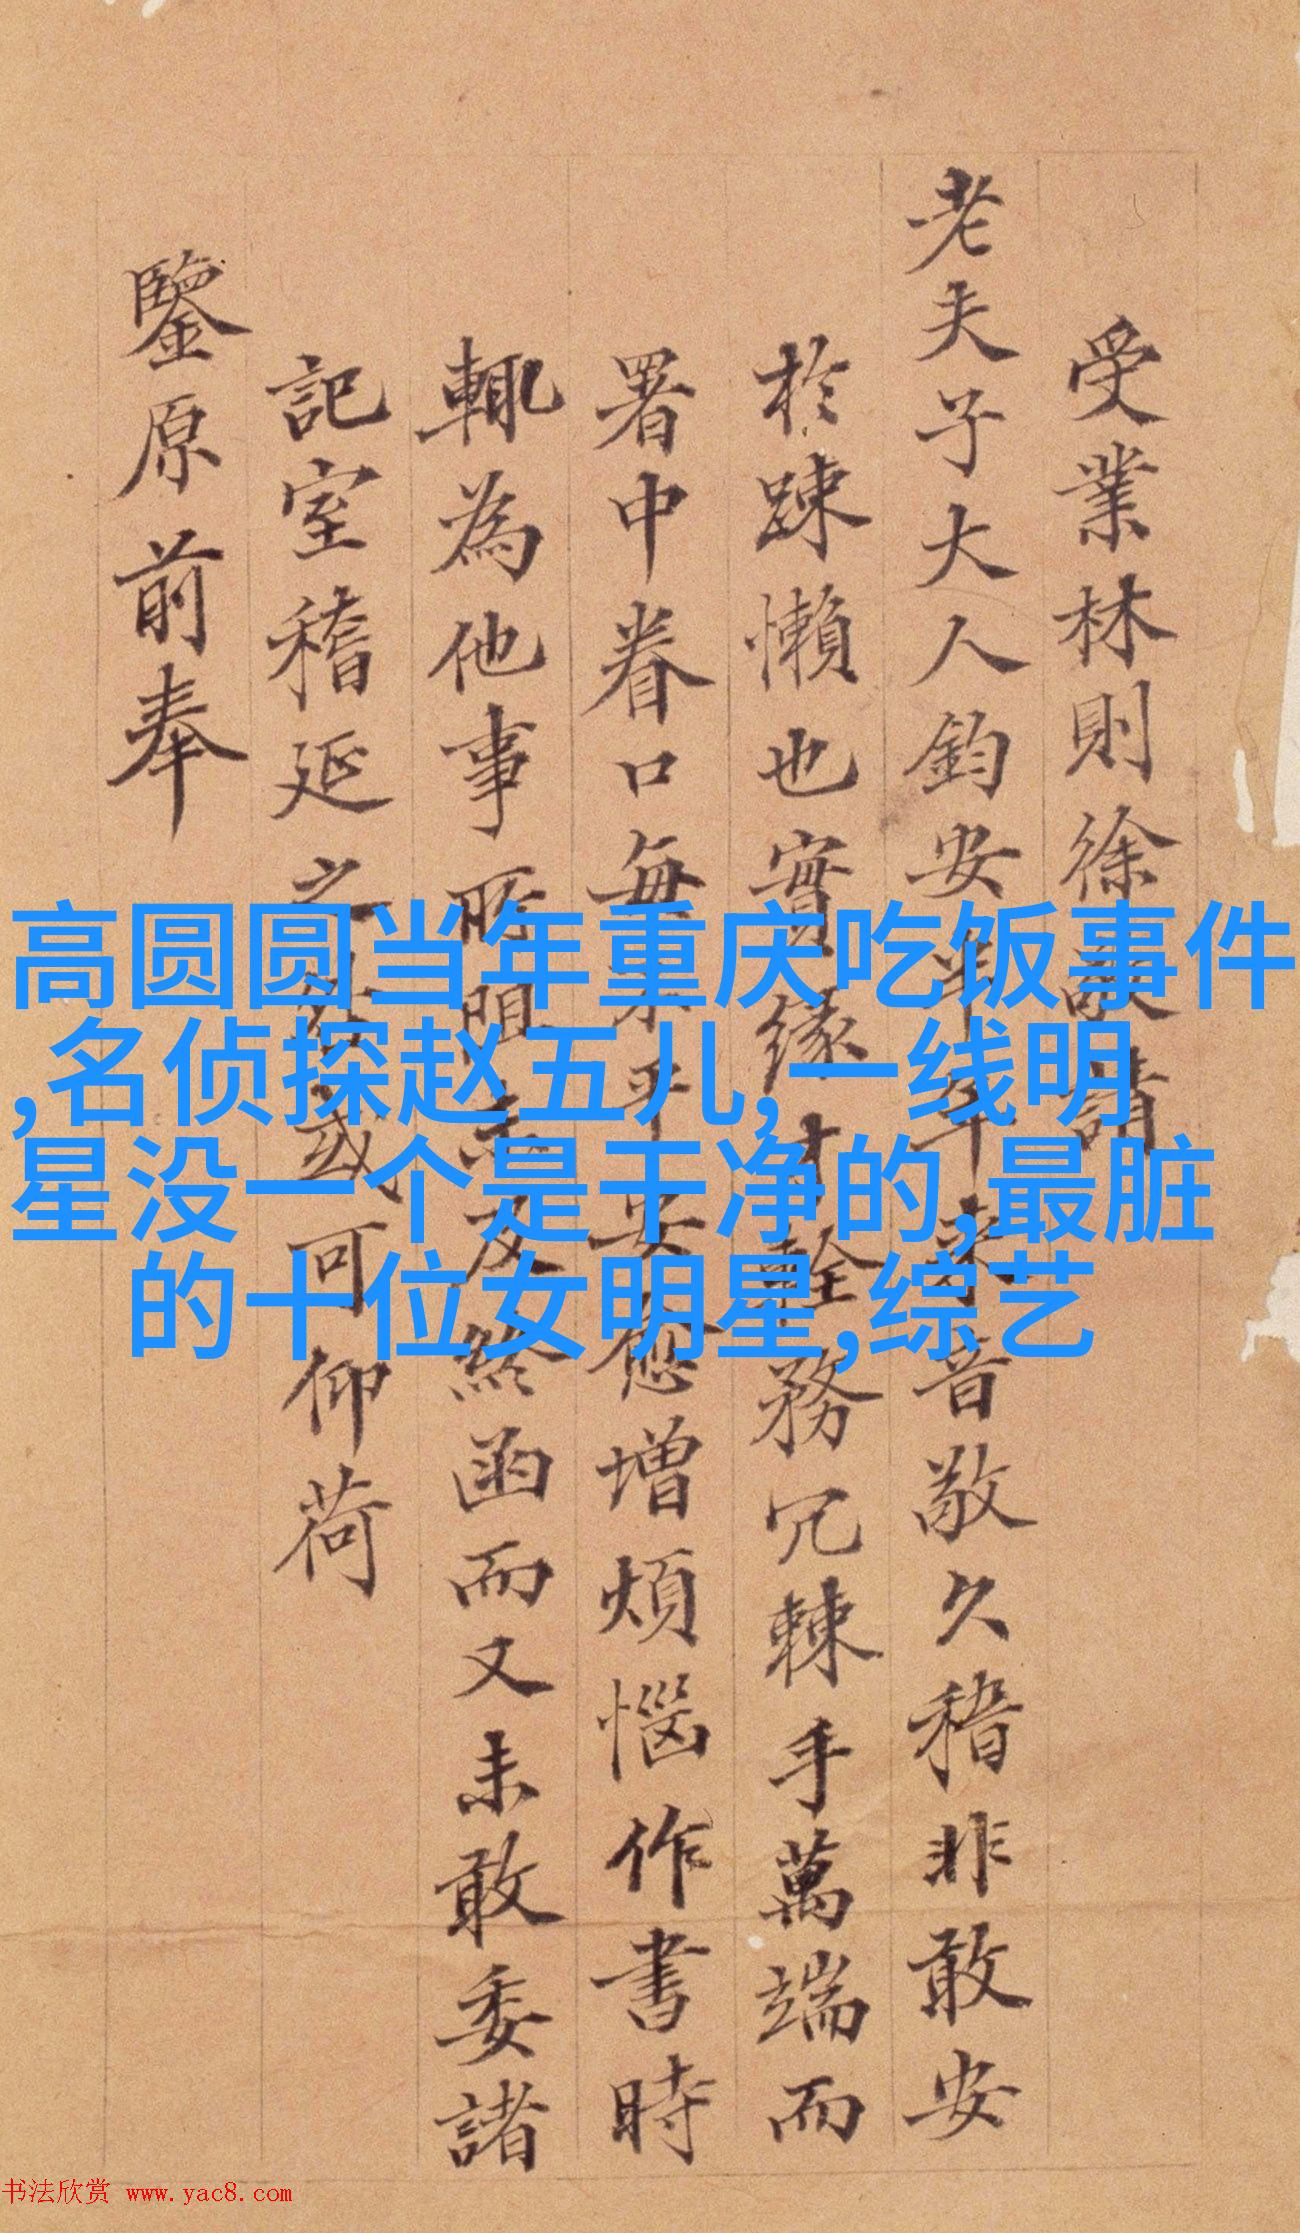 受業林則徐敬請
老夫子大人鈞安半年來音敬久稽非敢安
於踈懶也實緣才輇務冗棘手萬端而
署中眷口每未平安愈增煩惱作書時
輒為他事所阻未及終函而又未敢委諸
記室稽延之處或可仰荷
鑒原前奉
高圆圆当年重庆吃饭事件
,名侦探赵五儿,一线明
星没一个是干净的,最脏
的十位女明星,综艺
书法欣赏 www.yac8.com